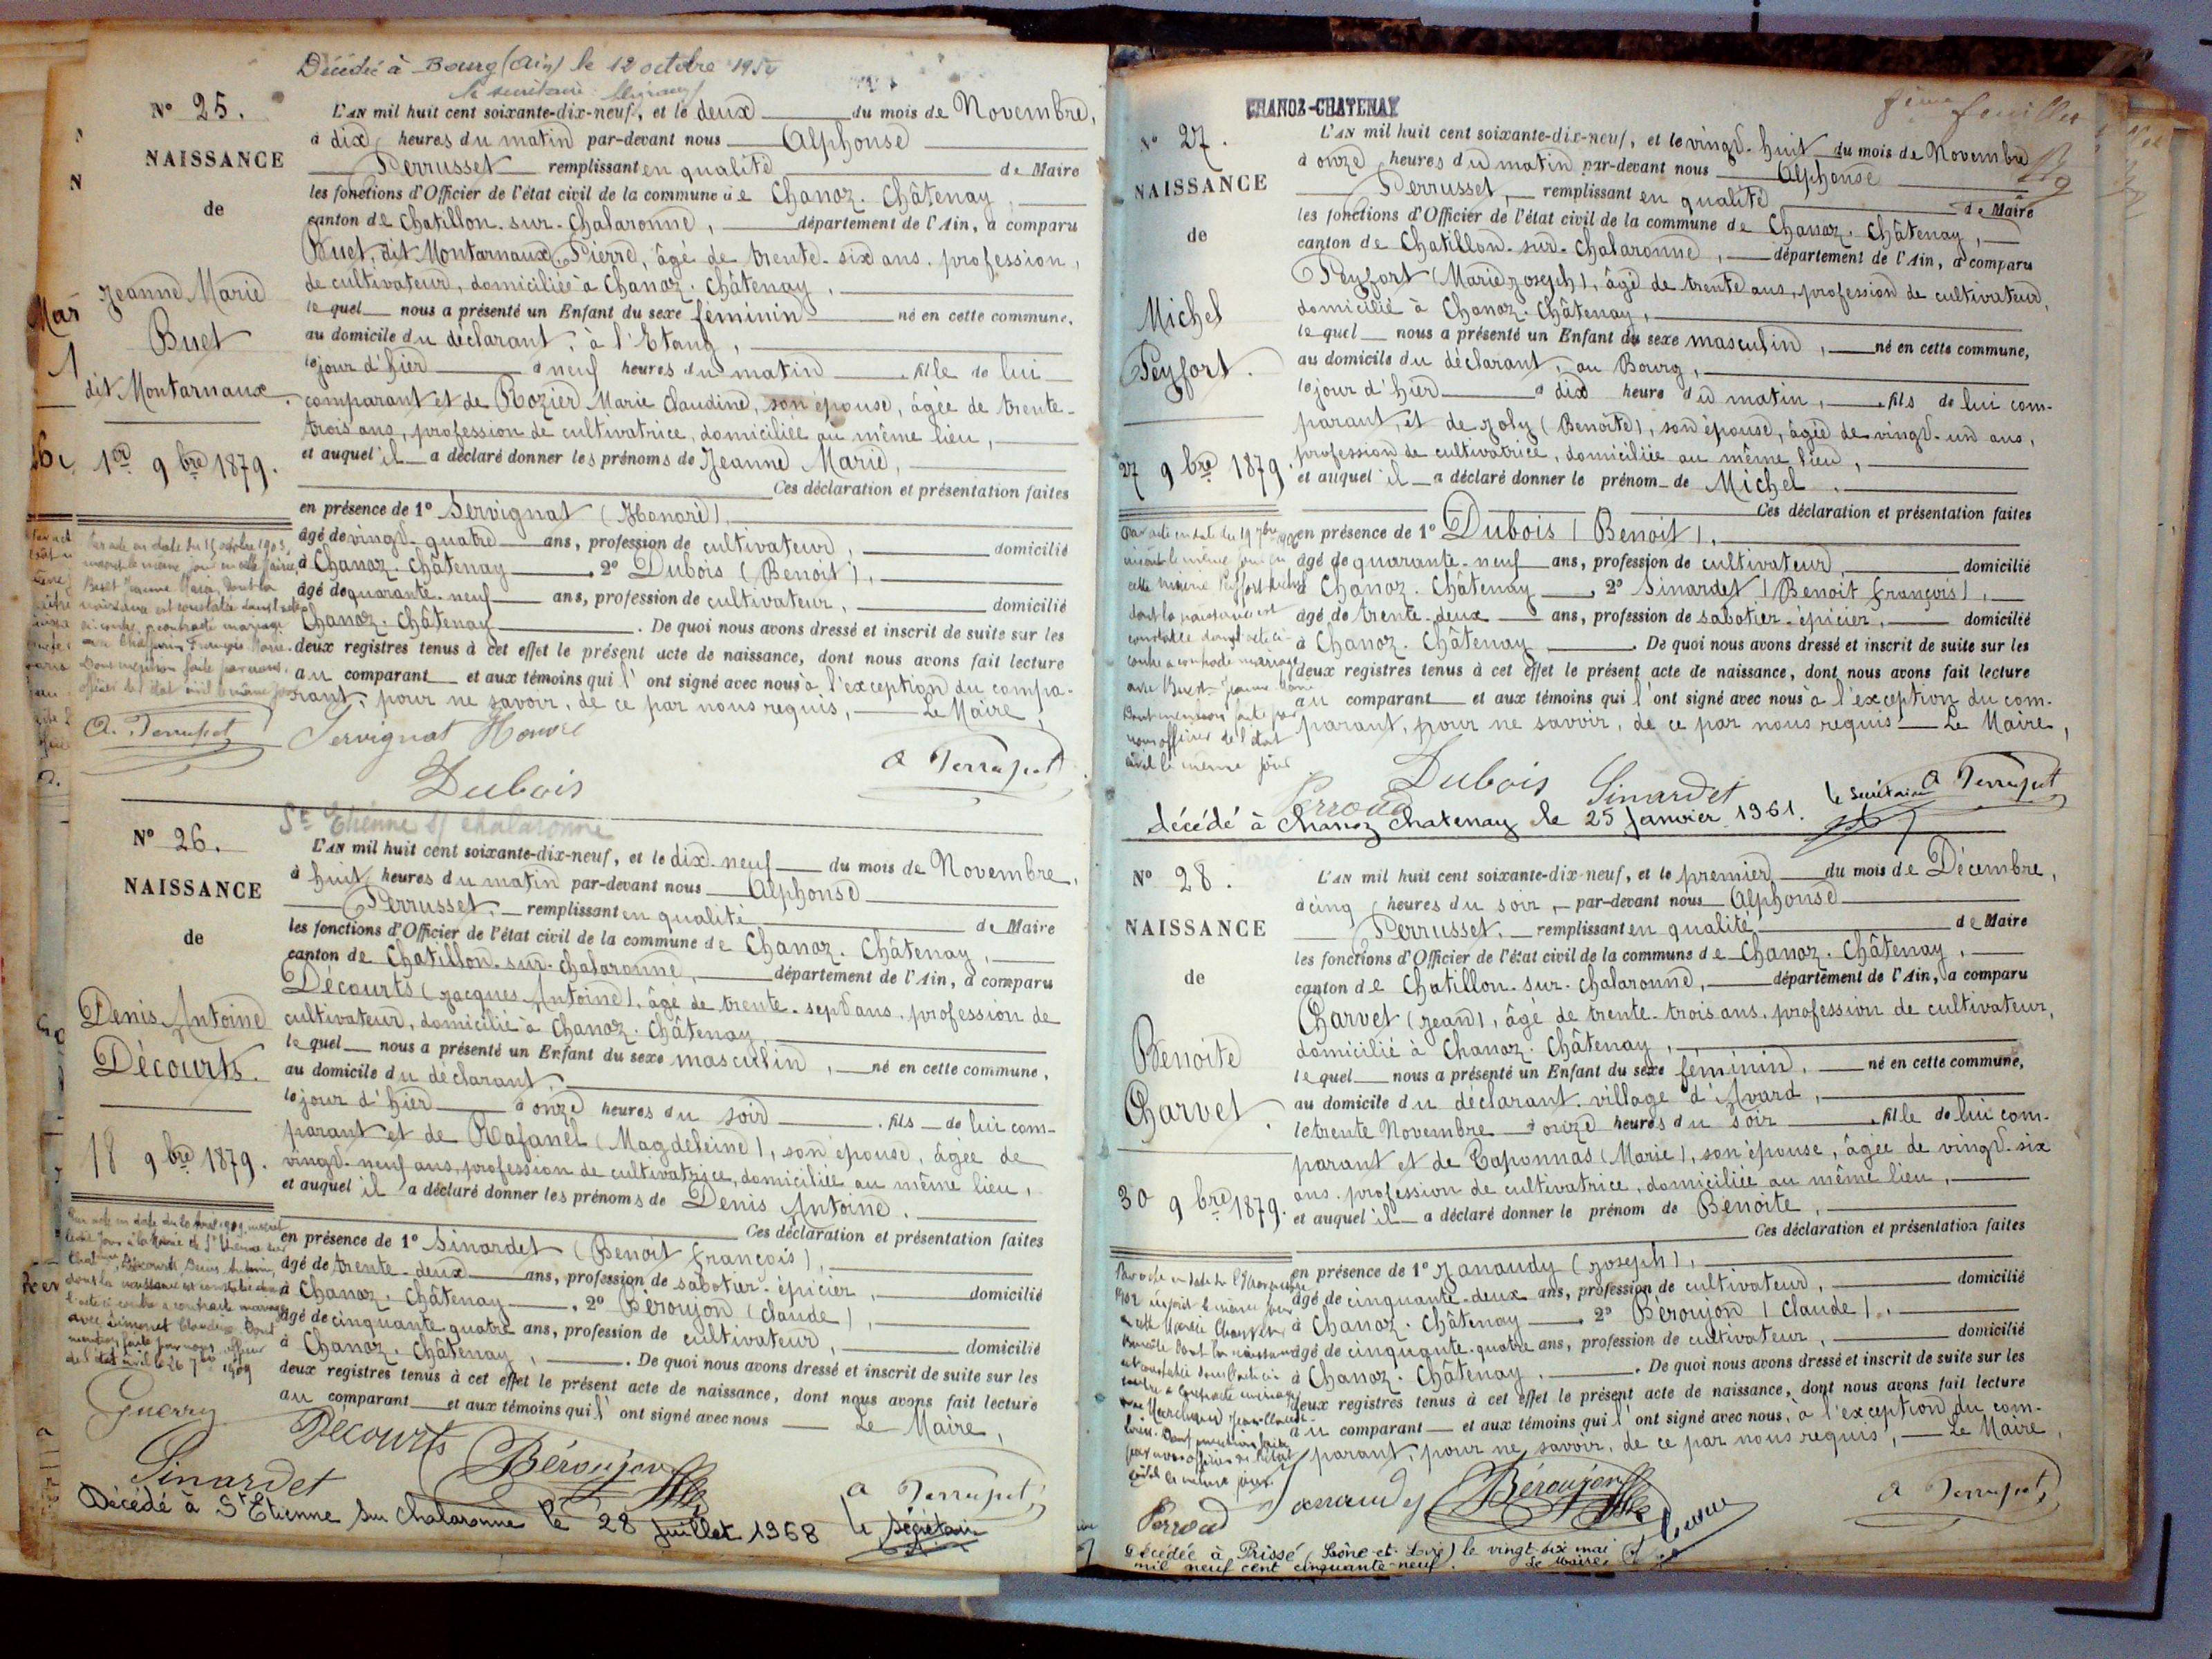 Décédée à Bourg (Ain) le 12 octobre 195
Le secrétaire
N° 25.
NAISSANCE
de
Jeanne Marie
Buet
dit Montarnaux.
1er 9bre 1879.
L'AN mil huit cent soixante-dix-neuf, et le deux du mois de Novembre,
à dix heures du matin par-devant nous Alphonse
Perrusset remplissant en qualité de Maire
les fonctions d'Officier de l'état civil de la commune de Chanoz-Châtenay,
canton de Chatillon-sur-Chalaronne, département de l'Ain, a comparu
Buet, dit Montarnaux Pierre, âgé de trente-six ans, profession,
de cultivateur, domiciliée à Chanoz-Châtenay,
lequel nous a présenté un Enfant du sexe féminin né en cette commune,
au domicile du déclarant, à l'Etang,
le jour d'hier à neuf heures du matin, fille de lui
comparant et de Rozier Marie Claudine, son épouse, âgée de trente-
trois ans, profession de cultivatrice, domiciliée au même lieu,
et auquel il a déclaré donner les prénoms de Jeanne Marie,
Ces déclaration et présentation faites
en présence de 1° Servignat (Honoré),
âgé de vingt-quatre ans, profession de cultivateur, domicilié
à Chanoz-Châtenay, 2° Dubois (Benoit),
âgé de quarante-neuf ans, profession de cultivateur, domicilié
Chanoz-Châtenay. De quoi nous avons dressé et inscrit de suite sur les
deux registres tenus à cet effet le présent acte de naissance, dont nous avons fait lecture
au comparant et aux témoins qui l'ont signé avec nous à l'exception du compa-
rant, pour ne savoir, de ce par nous requis, Le Maire,
Par acte en date du 15 octobre 1903,
inscrit le même jour en cette Mairie,
Buet Jeanne Marie, dont la
naissance est constatée dans l'acte
ci-contre, a contracté mariage
avec François Marie.
Dont mention faite par nous,
officier de l'état civil le même jour
A. Perrusset
Servignat Honoré
Dubois
A Perrusset
St Etienne s/ Chalaronne
N° 26.
NAISSANCE
de
Denis Antoine
Décourts.
18 9bre 1879.
L'AN mil huit cent soixante-dix-neuf, et le dix-neuf du mois de Novembre,
à huit heures du matin par-devant nous Alphonse
Perrusset, remplissant en qualité de Maire
les fonctions d'Officier de l'état civil de la commune de Chanoz-Châtenay,
canton de Chatillon-sur-Chalaronne, département de l'Ain, a comparu
Décourts (Jacques Antoine), âgé de trente-sept ans, profession de
cultivateur, domicilié à Chanoz-Châtenay
lequel nous a présenté un Enfant du sexe masculin, né en cette commune,
au domicile du déclarant,
le jour d'hier à onze heures du soir, fils de lui com-
parant et de Rafanel (Magdeleine), son épouse, âgée de
vingt-neuf ans, profession de cultivatrice, domiciliée au même lieu,
et auquel il a déclaré donner les prénoms de Denis Antoine.
Ces déclaration et présentation faites
en présence de 1° Sinardet (Benoit François),
âgé de trente-deux ans, profession de sabotier-épicier, domicilié
à Chanoz-Châtenay, 2° Béroujon (Claude),
âgé de cinquante quatre ans, profession de cultivateur, domicilié
à Chanoz-Châtenay,. De quoi nous avons dressé et inscrit de suite sur les
deux registres tenus à cet effet le présent acte de naissance, dont nous avons fait lecture
au comparant et aux témoins qui l'ont signé avec nous Le Maire,
Par acte en date du 20 Avril 1909, inscrit
le même jour à la Mairie de St Etienne sur
Chalaronne, Décourts Denis Antoine,
dont la naissance est constatée dans
l'acte ci-contre a contracté mariage
avec Limonet Claudine. Dont
mention faite par nous officier
de l'état civil le 26 7bre 1909
Guerry
Decourts
Sinardet
Béroujon
A Perrusset
Décédé à St Etienne sur Chalaronne le 28 juillet 1968 le secrétaire
CHANOZ-CHATENAY
7ème feuillet
N° 27.
NAISSANCE
de
Michel
Peyfort.
27 9bre 1879
L'AN mil huit cent soixante-dix-neuf, et le vingt-huit du mois de Novembre
à onze heures du matin par-devant nous Alphonse
Perrusset, remplissant en qualité de Maire
les fonctions d'Officier de l'état civil de la commune de Chanoz-Châtenay,
canton de Chatillon-sur-Chalaronne, département de l'Ain, a comparu
Peyfort (Marie Joseph), âgé de trente ans, profession de cultivateur,
domicilié à Chanoz-Châtenay,
lequel nous a présenté un Enfant du sexe masculin, né en cette commune,
au domicile du déclarant, au Bourg,
le jour d'hier à dix heure du matin, fils de lui com-
parant, et de Joly (Benoite), son épouse, âgée de vingt-un ans,
profession de cultivatrice, domiciliée au même lieu,
et auquel il a déclaré donner le prénom de Michel.
Ces déclaration et présentation faites
en présence de 1° Dubois (Benoit),
âgé de quarante-neuf ans, profession de cultivateur, domicilié
à Chanoz-Châtenay, 2° Sinardet (Benoit François),
âgé de trente-deux ans, profession de sabotier-épicier, domicilié
à Chanoz-Châtenay. De quoi nous avons dressé et inscrit de suite sur les
deux registres tenus à cet effet le présent acte de naissance, dont nous avons fait lecture
au comparant et aux témoins qui l'ont signé avec nous à l'exception du com-
parant, pour ne savoir, de ce par nous requis Le Maire,
Par acte en date du 19 7bre
inscrit le même jour en
cette Mairie Peyfort Michel
dont la naissance est
constatée dans l'acte ci-
contre a contracté mariage
avec Buet Jeanne Marie
Dont mention faite par
nous officier de l'état
civil le même jour
Perroud
Dubois Sinardet
A Perrusset
décédé à Chanoz Chatenay le 25 Janvier 1961. le secrétaire
N° 28.
NAISSANCE
de
Benoite
Charvet.
30 9bre 1879.
L'AN mil huit cent soixante-dix-neuf, et le premier du mois de Décembre,
à cinq heures du soir, par-devant nous Alphonse
Perrusset, remplissant en qualité de Maire
les fonctions d'Officier de l'état civil de la commune de Chanoz-Châtenay,
canton de Chatillon-sur-Chalaronne, département de l'Ain, a comparu
Charvet (Jean), âgé de trente-trois ans, profession de cultivateur,
domicilié à Chanoz-Châtenay,
lequel nous a présenté un Enfant du sexe féminin, né en cette commune,
au domicile du déclarant, village d'Avard,
le trente Novembre à onze heures du soir, fille de lui com-
parant et de Taponnas (Marie), son épouse, âgée de vingt-six
ans, profession de cultivatrice, domiciliée au même lieu,
et auquel il a déclaré donner le prénom de Benoite,
Ces déclaration et présentation faites
en présence de 1° Janaudy (Joseph),
âgé de cinquante-deux ans, profession de cultivateur, domicilié
à Chanoz-Châtenay, 2° Béroujon (Claude),
âgé de cinquante-quatre ans, profession de cultivateur, domicilié
à Chanoz-Châtenay,. De quoi nous avons dressé et inscrit de suite sur les
deux registres tenus à cet effet le présent acte de naissance, dont nous avons fait lecture
au comparant et aux témoins qui l'ont signé avec nous, à l'exception du com-
parant, pour ne savoir, de ce par nous requis, Le Maire,
inscrit le même jour
en cette Mairie Charvet
Benoite dont la naissance
est constatée dans l'acte ci-
contre a contracté mariage
Dont mention faite
par nous officier de l'état
civil le même jour
Perroud
Janaudy
Béroujon
A Perrusset
Décédée à Prissé (Saône-et-Loire) le vingt-six mai
mil neuf cent cinquante-neuf. Le Maire